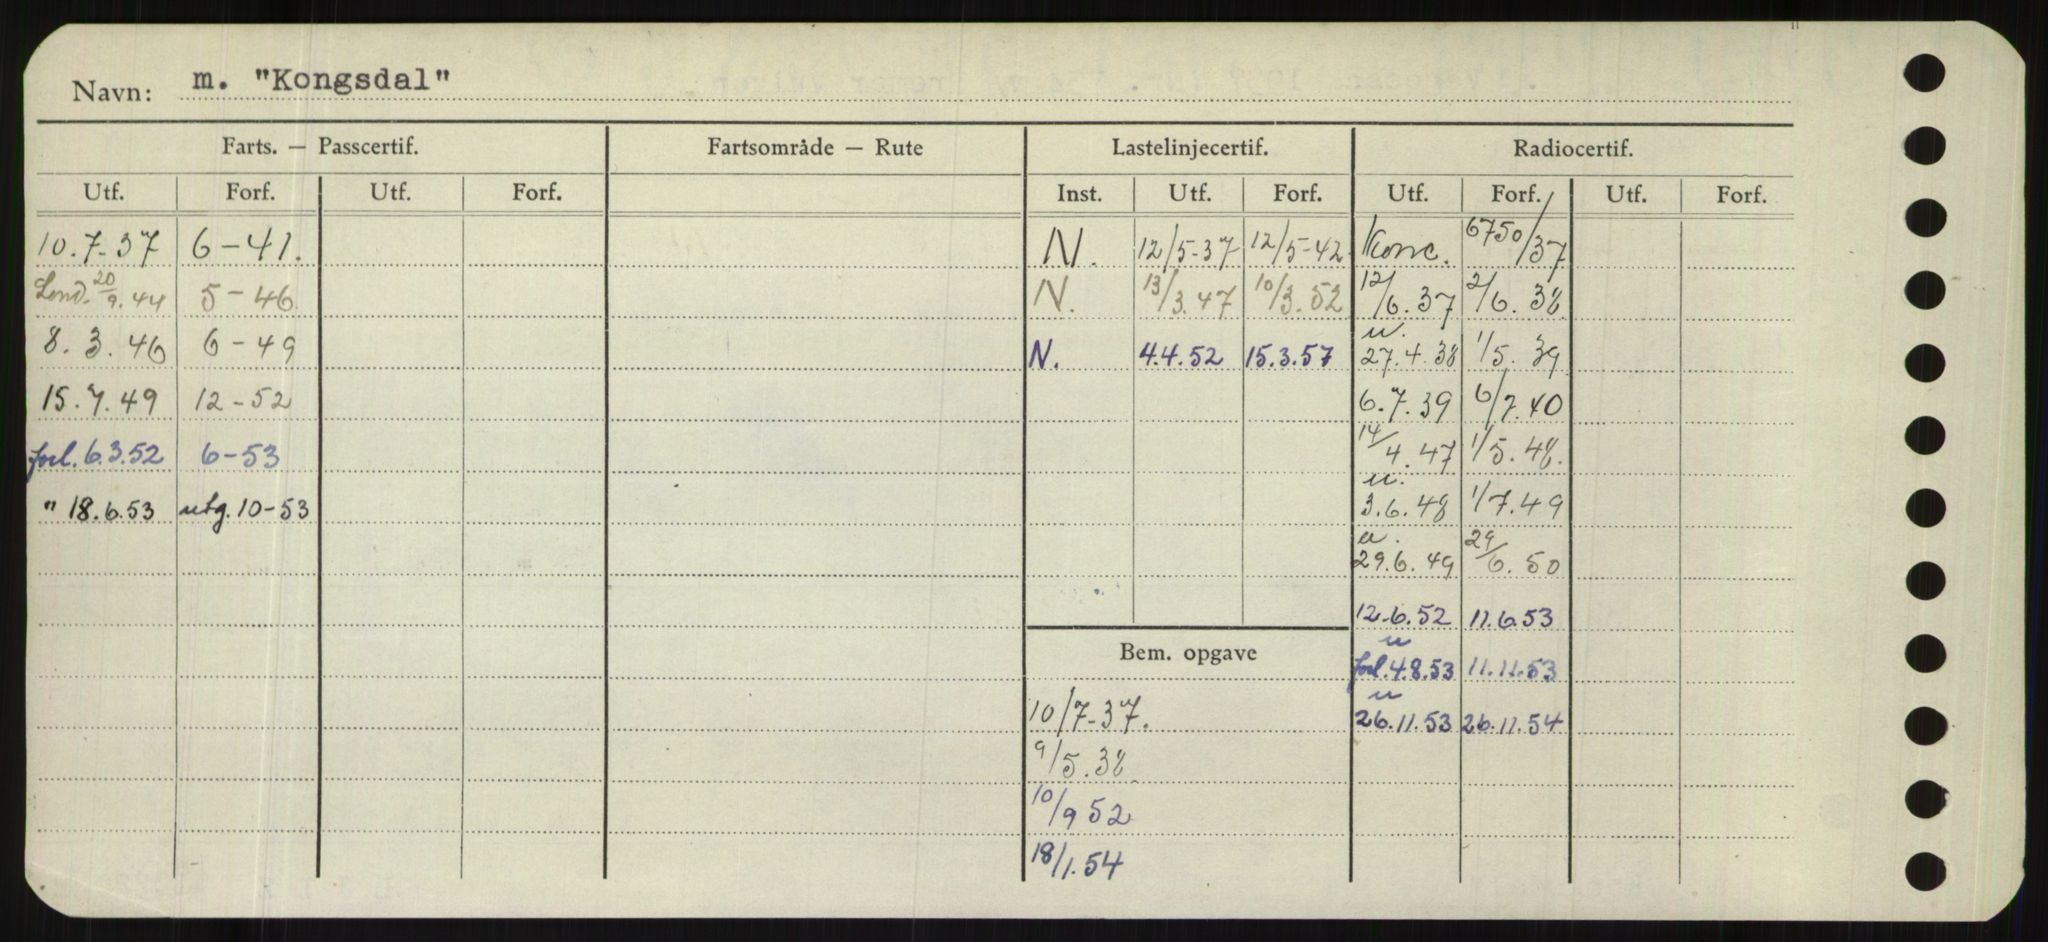 Navn: m. "Kongsdal"
Farts. — Passcertif. Fartsområde — Rute Lastelinjecertif. Radiocertif.
Utf. Forf. Utf. Forf. Inst. Utf. Forf. Utf. Forf. Utf. Forf.
10.7-37 6-41. N. 12/5-37 12/5-42 Konc. 6750/37
Lond. 20/9.44 5-46 N. 13/3.47 10/3.52 12/6.37 2/6.38
u.
8.3.46 6-49 N. 4.4.52 15.3.57 27.4.38 1/5.39
15.7.49 12-52 6.7.39 6/7.40
forl. 6.3.52 6-53 14/4.47 1/5.48.
u.
" 18.6.53 utg. 10-53 3.6.48 1/7.49
u.
29.6.49 29/6.50
12.6.52 11.6.53
u
Bem. opgave forl. 4.8.53 11.11.53
u
10/7-37. 26.11.53 26.11.54
9/5.38
10/9 52
18/1.54